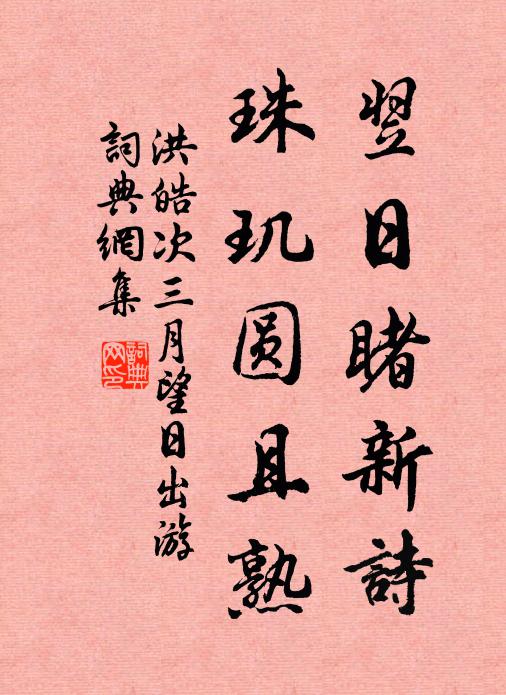 翌日睹新詩
珠玑圆且熟
洪皓次三月望日出游
詞典網集
詞典网印